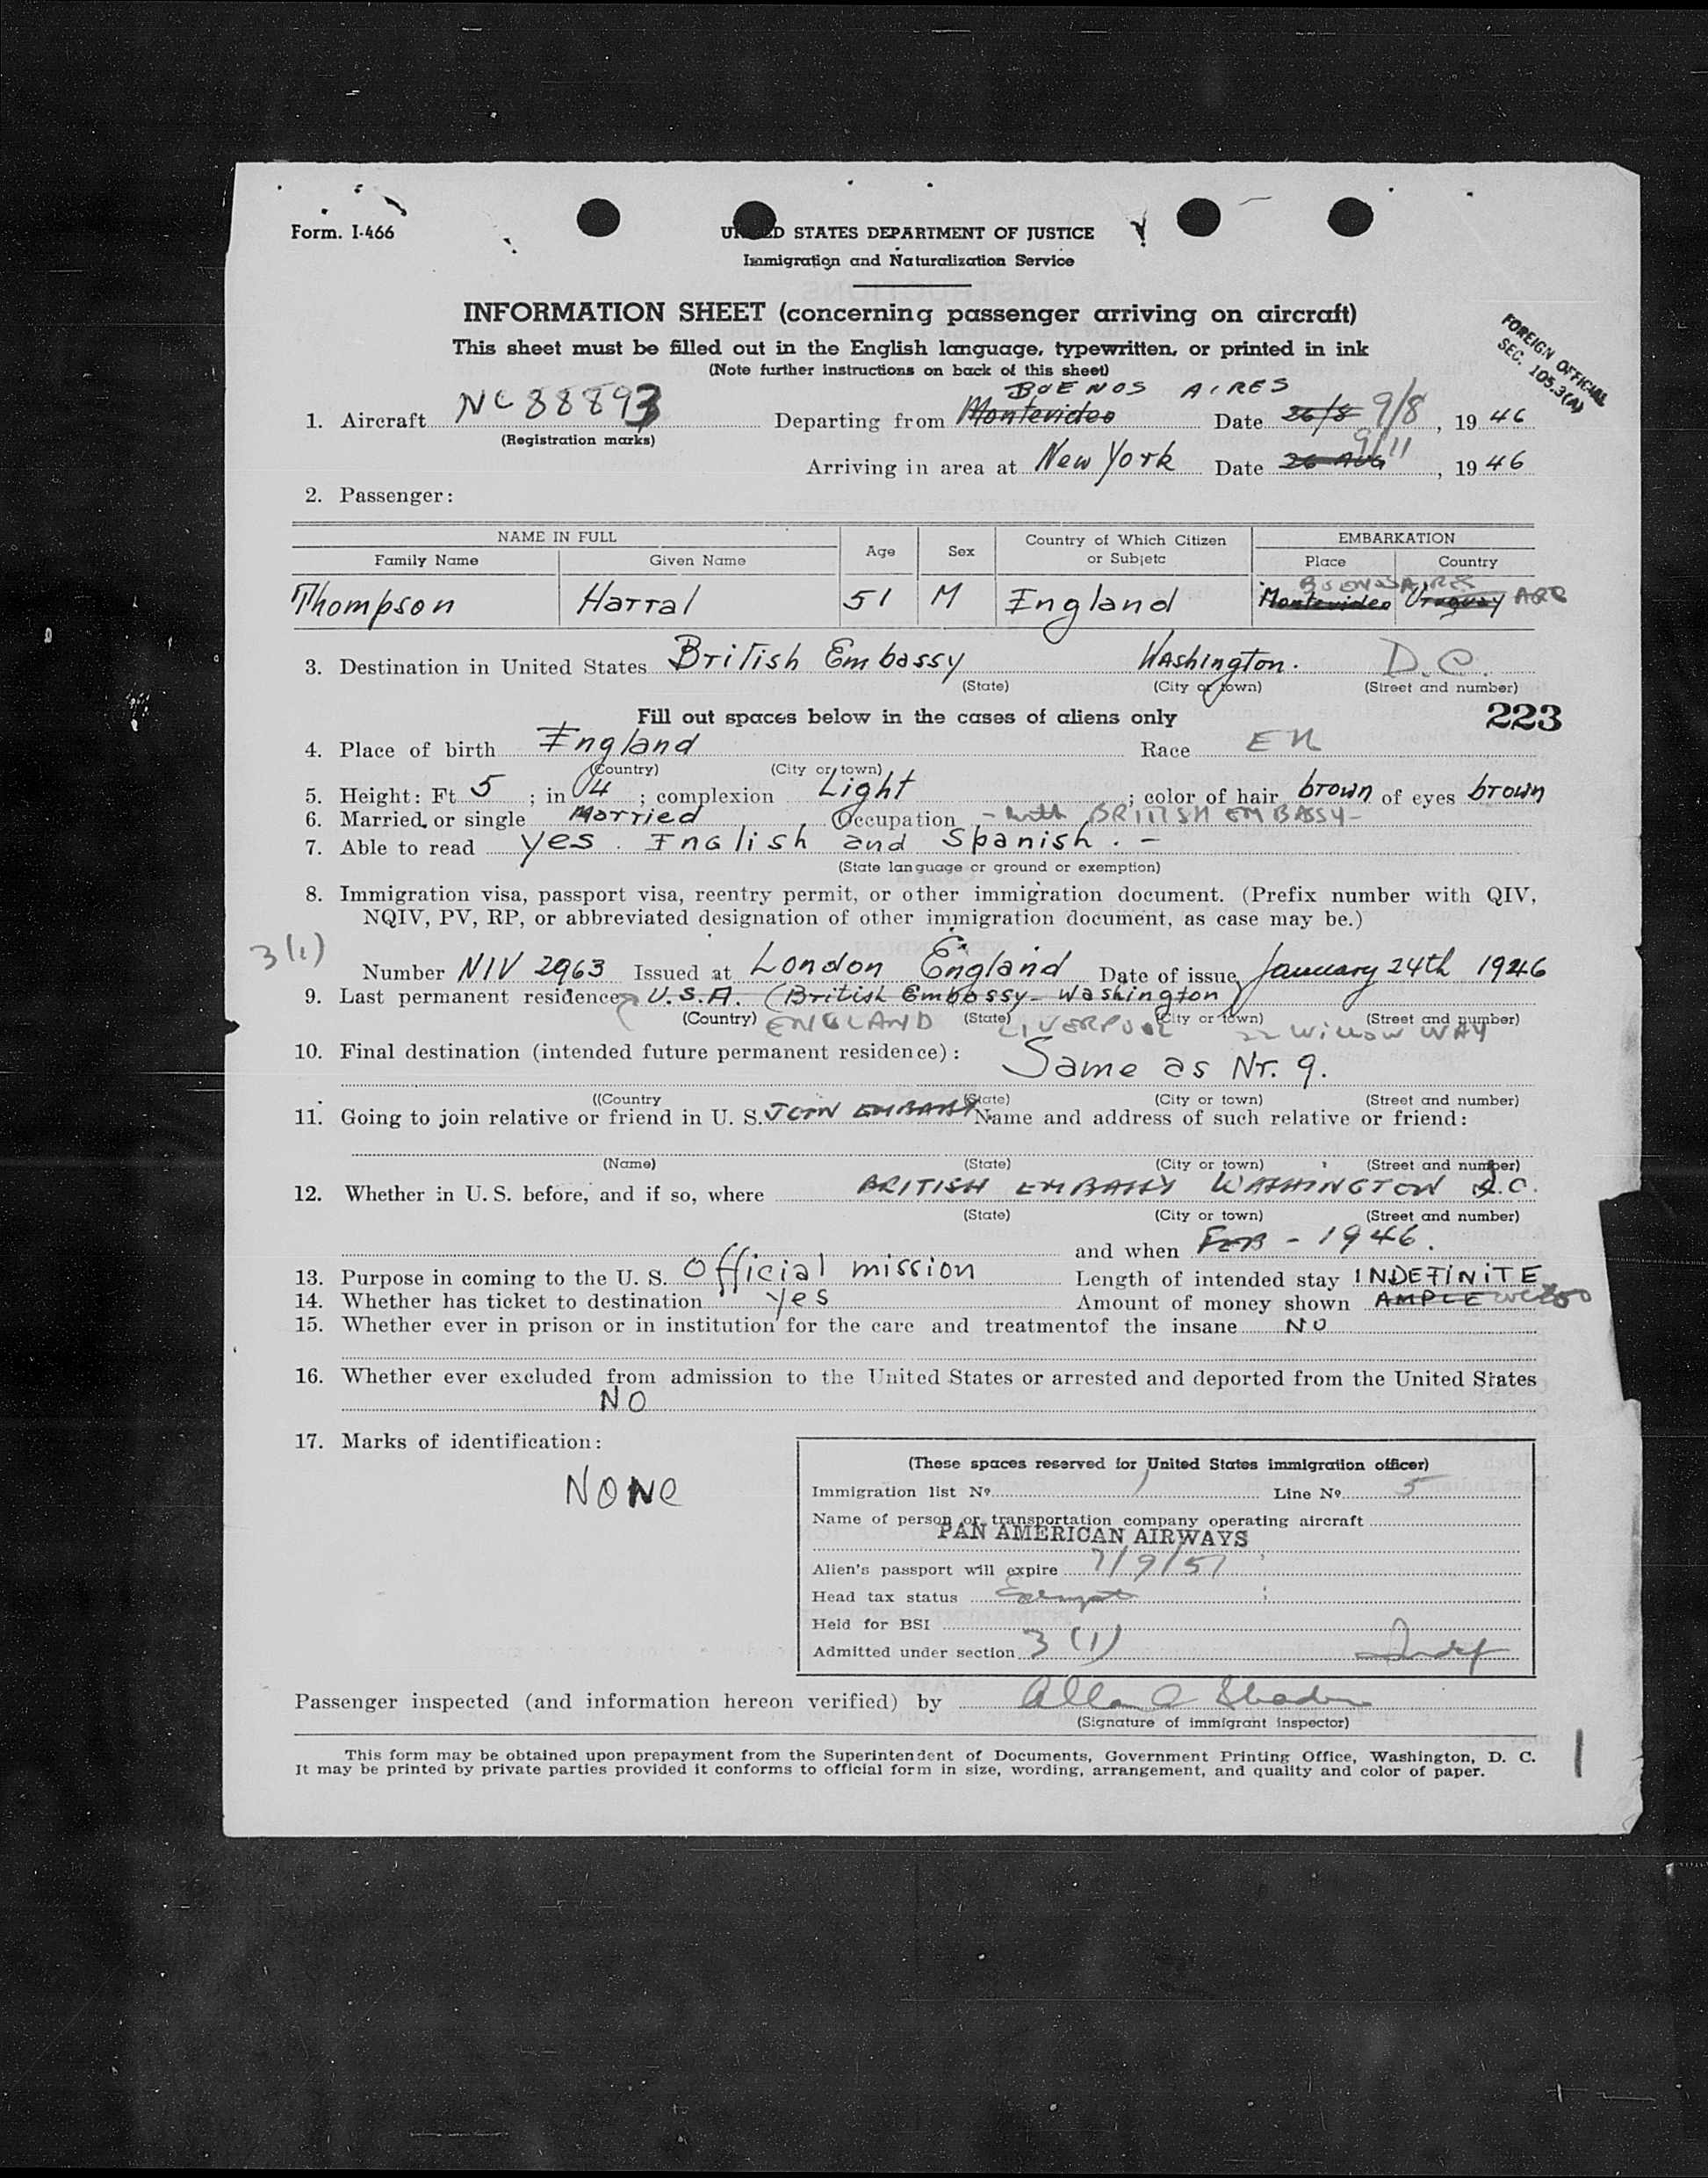 Form. I-466
UNITED STATES DEPARTMENT OF JUSTICE
Immigration and Naturalization Service
INFORMATION SHEET (concerning passenger arriving on aircraft)
This sheet must be filled out in the English language, typewritten, or printed in ink
(Note further instructions on back of this sheet)
FOREIGN OFFICIAL
SEC. 105.3(A)
BUENOS AIRES
1. Aircraft NC 88893 Departing from Montevideo Date 26/8 9/8, 1946
(Registration marks)
9/11
Arriving in area at New York Date 26 AUG, 1946
2. Passenger:
NAME IN FULL Age Sex Country of Which Citizen or Subjetc EMBARKATION
Family Name Given Name Place Country
BUENOS AIRES
Thompson Harral 51 M England Montevideo Uruguay ARG
3. Destination in United States British Embassy Washington. D.C.
(State) (City or town) (Street and number)
Fill out spaces below in the cases of aliens only 223
4. Place of birth England Race EN
(Country) (City or town)
5. Height: Ft 5 ; in 04 ; complexion Light ; color of hair brown of eyes brown
6. Married or single Married Occupation - with BRITISH EMBASSY -
7. Able to read yes. English and Spanish. -
(State language or ground or exemption)
8. Immigration visa, passport visa, reentry permit, or other immigration document. (Prefix number with QIV,
NQIV, PV, RP, or abbreviated designation of other immigration document, as case may be.)
3(1)
Number NIV 2963 Issued at London England Date of issue January 24th 1946
9. Last permanent residence U.S.A. (British Embassy - Washington
(Country) (State) (City or town) (Street and number)
ENGLAND LIVERPOOL 22 WILLOW WAY
10. Final destination (intended future permanent residence): Same as Nr. 9.
((Country (State) (City or town) (Street and number)
11. Going to join relative or friend in U. S. JOIN EMBASSY Name and address of such relative or friend:
(Name) (State) (City or town) (Street and number)
12. Whether in U. S. before, and if so, where BRITISH EMBASSY WASHINGTON D.C.
(State) (City or town) (Street and number)
and when FEB - 1946.
13. Purpose in coming to the U. S. Official mission Length of intended stay INDEFINITE
14. Whether has ticket to destination yes Amount of money shown AMPLE
15. Whether ever in prison or in institution for the care and treatmentof the insane NO
16. Whether ever excluded from admission to the United States or arrested and deported from the United States
NO
17. Marks of identification:
NONE
(These spaces reserved for United States immigration officer)
Immigration list Nº 1 Line Nº 5
Name of person or transportation company operating aircraft
PAN AMERICAN AIRWAYS
Alien's passport will expire 7/9/51
Head tax status Exempt
Held for BSI
Admitted under section 3 (1) Indef
Passenger inspected (and information hereon verified) by
(Signature of immigrant inspector)
This form may be obtained upon prepayment from the Superintendent of Documents, Government Printing Office, Washington, D. C.
It may be printed by private parties provided it conforms to official form in size, wording, arrangement, and quality and color of paper.